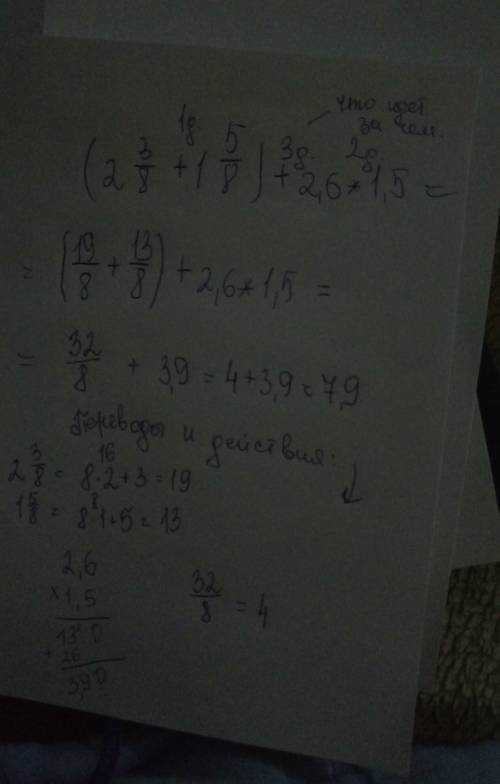 что идет
за чем.
1д 3д. 2д.
(2 3/8 + 1 5/8) + 2,6 * 1,5 =
= (19/8 + 13/8) + 2,6 * 1,5 =
= 32/8 + 3,9 = 4 + 3,9 = 7,9
Переводы и действия: ↓
16
2 3/8 = 8 · 2 + 3 = 19
8
1 5/8 = 8 · 1 + 5 = 13
2,6
× 1,5
130
+ 26
3,90
32/8 = 4